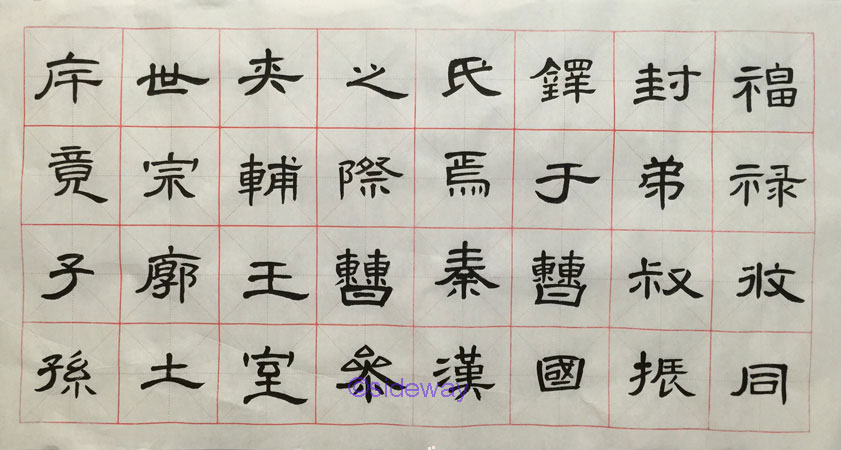 福禄攸同
封弟叔振
鐸于曹國
氏焉秦漢
之際曹參
夾輔王室
世宗廓土
斥竟子孫
©sideway